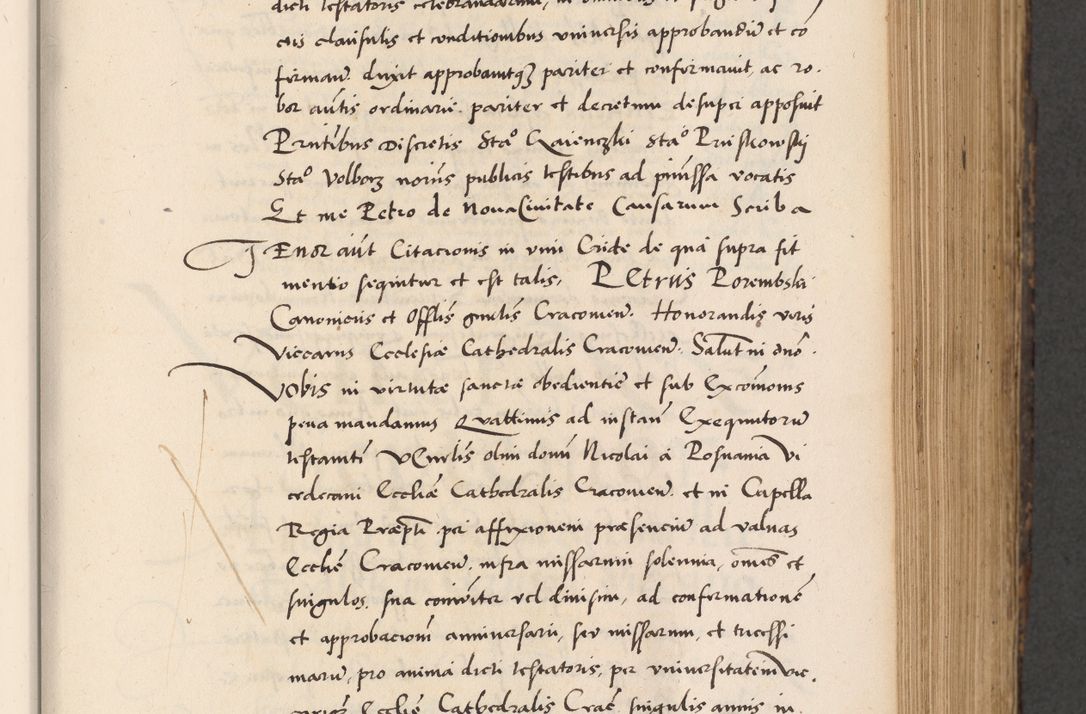 dicti testatoris celebrandarum, in
ctis clausulis et conditionibus universis approbandū et cō
firmanđ duxit approbavitqꝫ pariter et confirmavit, ac ro.
bor aūtis ordinarie pariter et decretum desuper apposuit
Prńtibus Discretis Sta° Sta° Pruskowskÿ
Sta° Volborz noriis publicis testibus ad pmissa vocatis
Et me Petro de Nova Civitate Causarum Scriba
TEnor aūt Citacionis in vim Cuide de qua supra fit
mentio sequitur et est talis, PEtrus Porembski
Canonicus et Offłis gnalis Cracovieñ. Honorandis viris
Viccariis Ecclesiæ Cathedralis Cracovieñ. Salut in dno.
Vobis in virtutæ sanctæ obedientiē et sub Excōmonis
pena mandamus Quattinus ad instanć Exequutorū
testamti VEnrlis olim domi Nicolai a Posnania Vi
cedecani Eccliæ Cathedralis Cracovieñ. et in Capella
Regia Præpti per affixionem præsenciū ad valvas
Eccliē Cracovieñ. infra missarum solennia, omēs et
singulos, sua comūiter vel divisim, ad confirmationē
et approbacionī anniversarii, seu missarum, et tricessi
marū, pro anima dicti testatoris, per universitatem Vic.
Eccliē Cathedralis Cracē singulis annis in